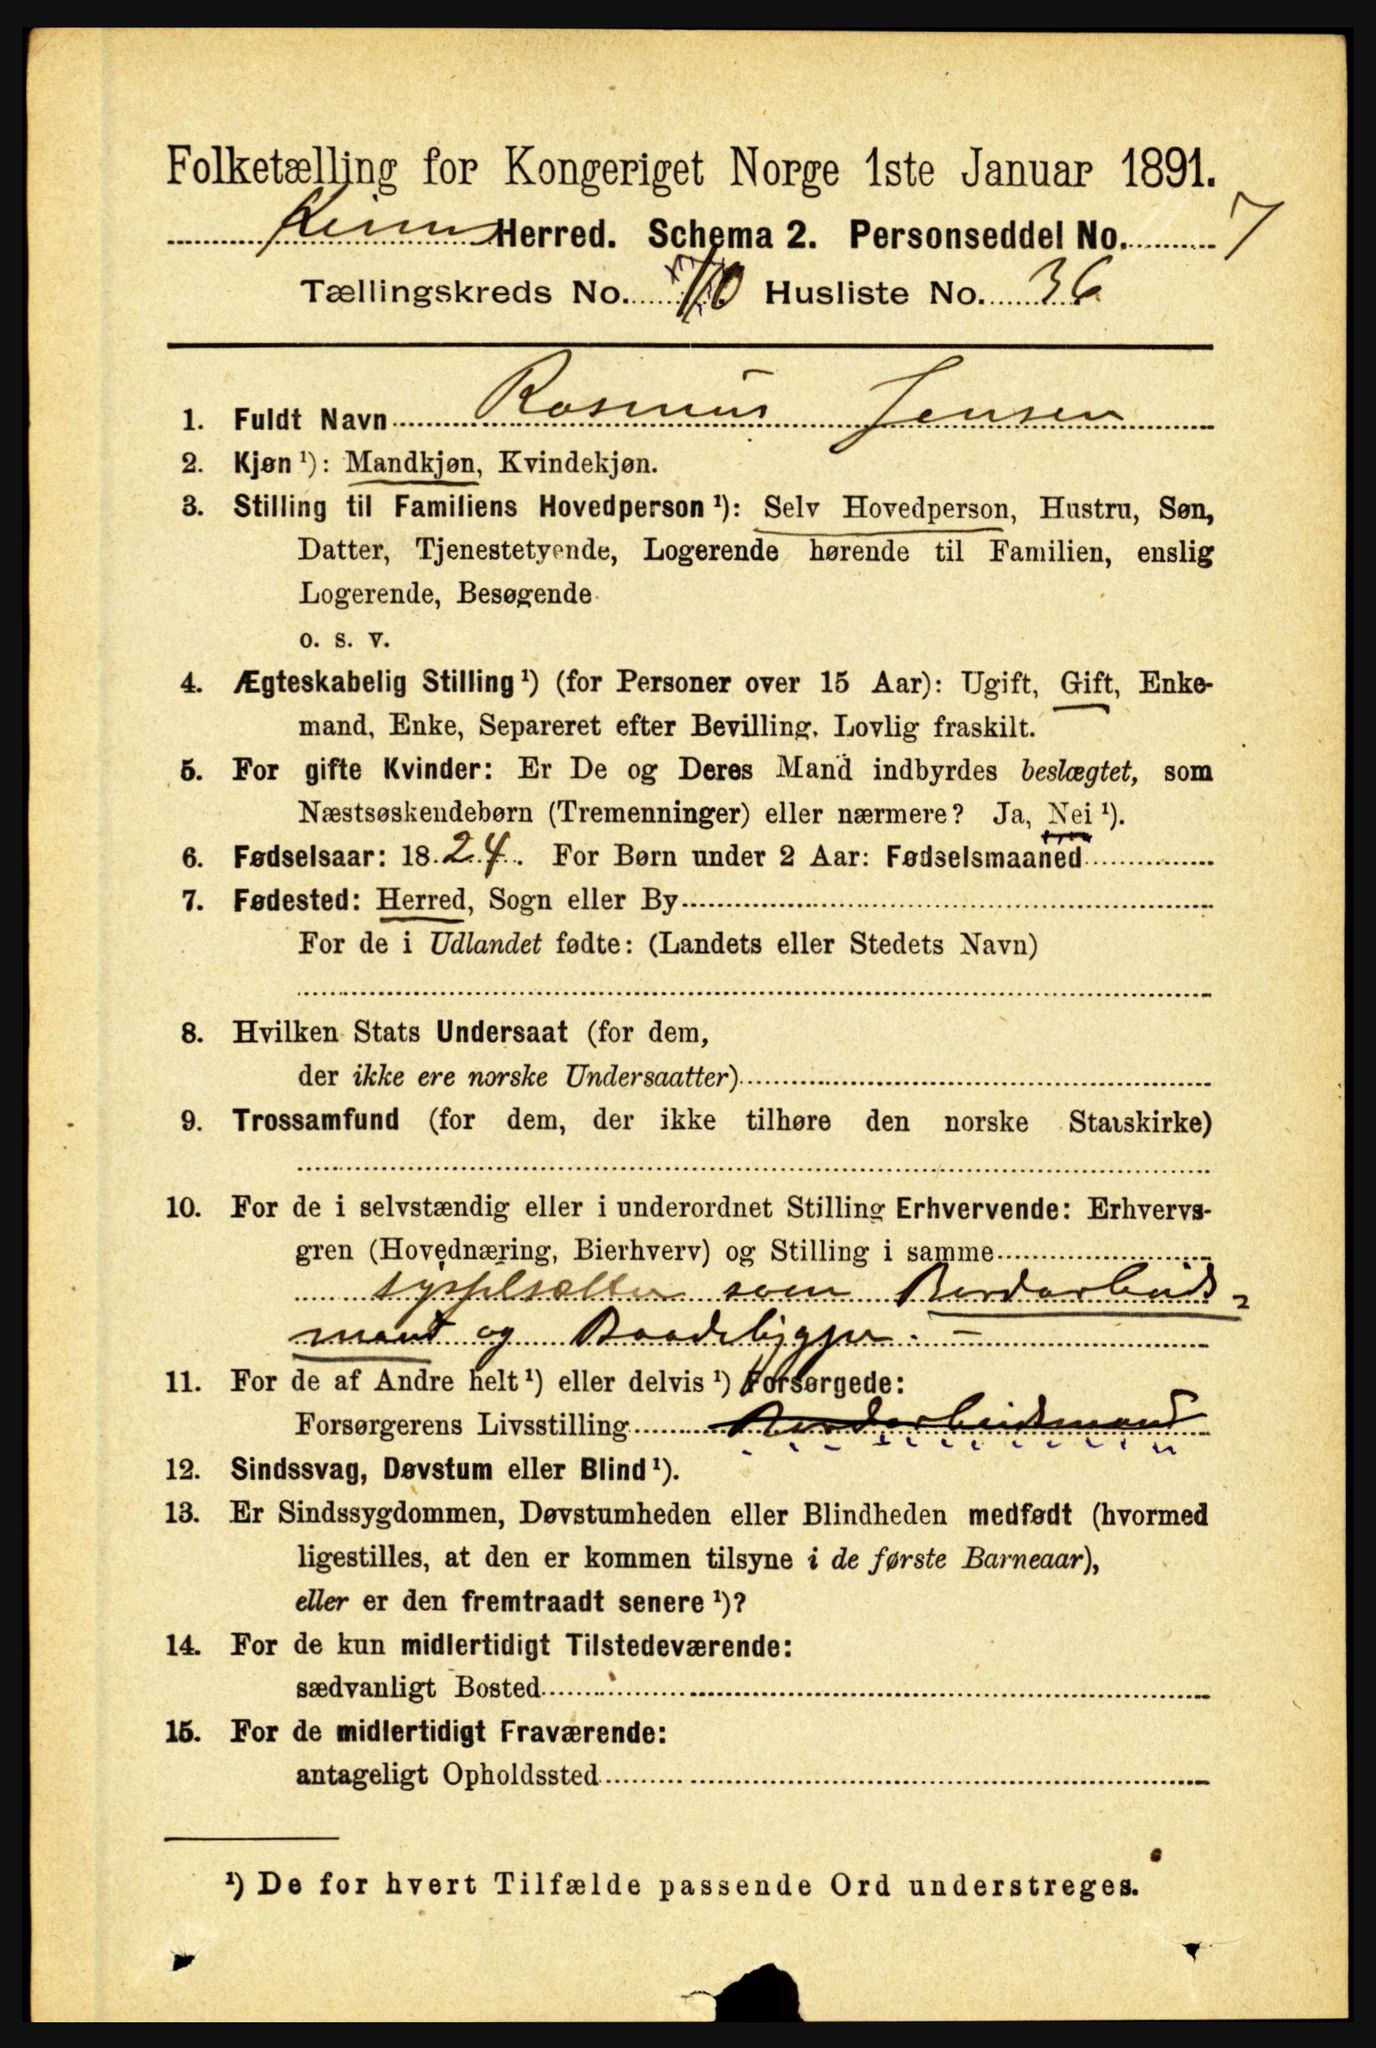 Folketælling for Kongeriget Norge 1ste Januar 1891.
Kinn Herred. Schema 2. Personseddel No. 7
Tællingskreds No. 10 Husliste No. 36
1. Fuldt Navn Rasmus Jensen
2. Kjøn ¹): Mandkjøn, Kvindekjøn.
3. Stilling til Familiens Hovedperson ¹): Selv Hovedperson, Hustru, Søn,
Datter, Tjenestetyende, Logerende hørende til Familien, enslig
Logerende, Besøgende
o. s. v.
4. Ægteskabelig Stilling ¹) (for Personer over 15 Aar): Ugift, Gift, Enke-
mand, Enke, Separeret efter Bevilling, Lovlig fraskilt.
5. For gifte Kvinder: Er De og Deres Mand indbyrdes beslægtet, som
Næstsøskendebørn (Tremenninger) eller nærmere? Ja, Nei ¹).
6. Fødselsaar: 1824. For Børn under 2 Aar: Fødselsmaaned
7. Fødested: Herred, Sogn eller By
For de i Udlandet fødte: (Landets eller Stedets Navn)
8. Hvilken Stats Undersaat (for dem,
der ikke ere norske Undersaatter)
9. Trossamfund (for dem, der ikke tilhøre den norske Statskirke)
10. For de i selvstændig eller i underordnet Stilling Erhvervende: Erhvervs-
gren (Hovednæring, Bierhverv) og Stilling i samme
sysselsætter som Bordarbeids-
mand og Baadebygger. –
11. For de af Andre helt ¹) eller delvis ¹) Forsørgede:
Forsørgerens Livsstilling Bordarbeidsmand
12. Sindssvag, Døvstum eller Blind ¹).
13. Er Sindssygdommen, Døvstumheden eller Blindheden medfødt (hvormed
ligestilles, at den er kommen tilsyne i de første Barneaar),
eller er den fremtraadt senere ¹)?
14. For de kun midlertidigt Tilstedeværende:
sædvanligt Bosted
15. For de midlertidigt Fraværende:
antageligt Opholdssted
¹) De for hvert Tilfælde passende Ord understreges.